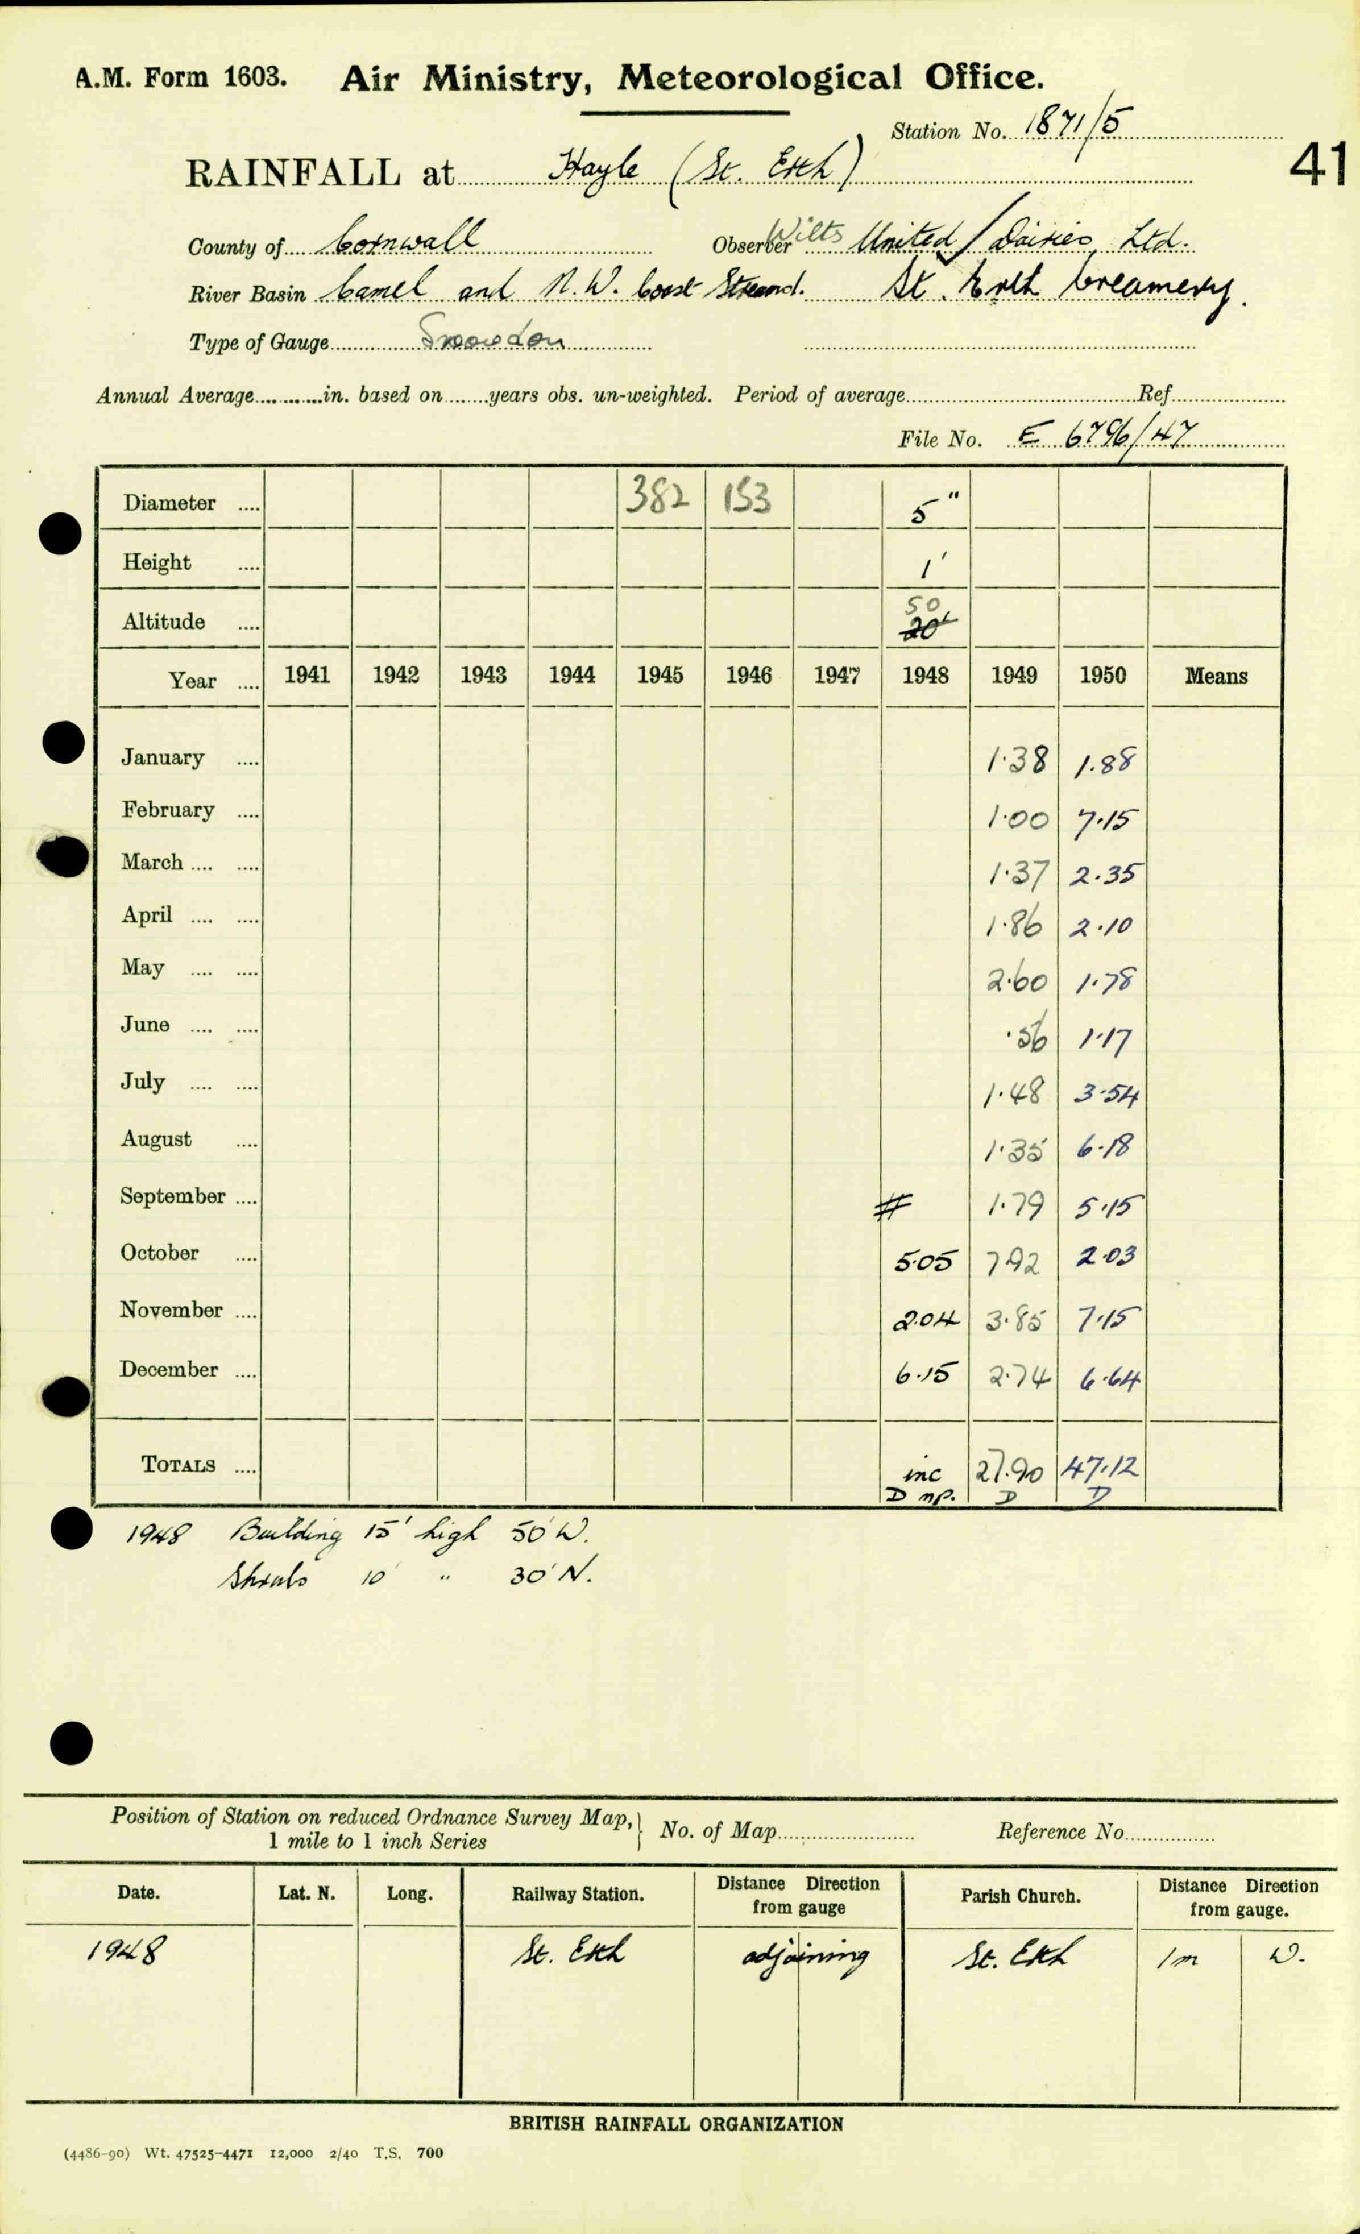 A.M. Form 1603. Air Ministry, Meteorological Office.
Station No. 1871/5
41
RAINFALL at Hayle (St. Erth)
County of Cornwall Observer Wilts United Dairies Ltd.
River Basin Camel and N.W. Coast Streams. St. Erth Creamery.
Type of Gauge Snowdon
Annual Average in. based on years obs. un-weighted. Period of average Ref
File No. E 6796/47
Diameter .... 382 153 5"
Height .... 1'
Altitude .... 50 20'
Year .... 1941 1942 1943 1944 1945 1946 1947 1948 1949 1950 Means
January .... 1.38 1.88
February .... 1.00 7.15
March .... .... 1.37 2.35
April .... .... 1.86 2.10
May .... .... 2.60 1.78
June .... .... .56 1.17
July .... .... 1.48 3.54
August .... 1.35 6.18
September .... # 1.79 5.15
October .... 5.05 7.92 2.03
November .... 2.04 3.85 7.15
December .... 6.15 2.74 6.64
TOTALS .... inc 27.90 47.12
D np. D D
1948 Building 15' high 50' W.
Shrubs 10' " 30' N.
Position of Station on reduced Ordnance Survey Map, } No. of Map Reference No
1 mile to 1 inch Series
Date. Lat. N. Long. Railway Station. Distance Direction from gauge Parish Church. Distance Direction from gauge.
1948 St. Erth adjoining St. Erth 1m W.
BRITISH RAINFALL ORGANIZATION
(4486-90) Wt. 47525-4471 12,000 2/40 T.S. 700